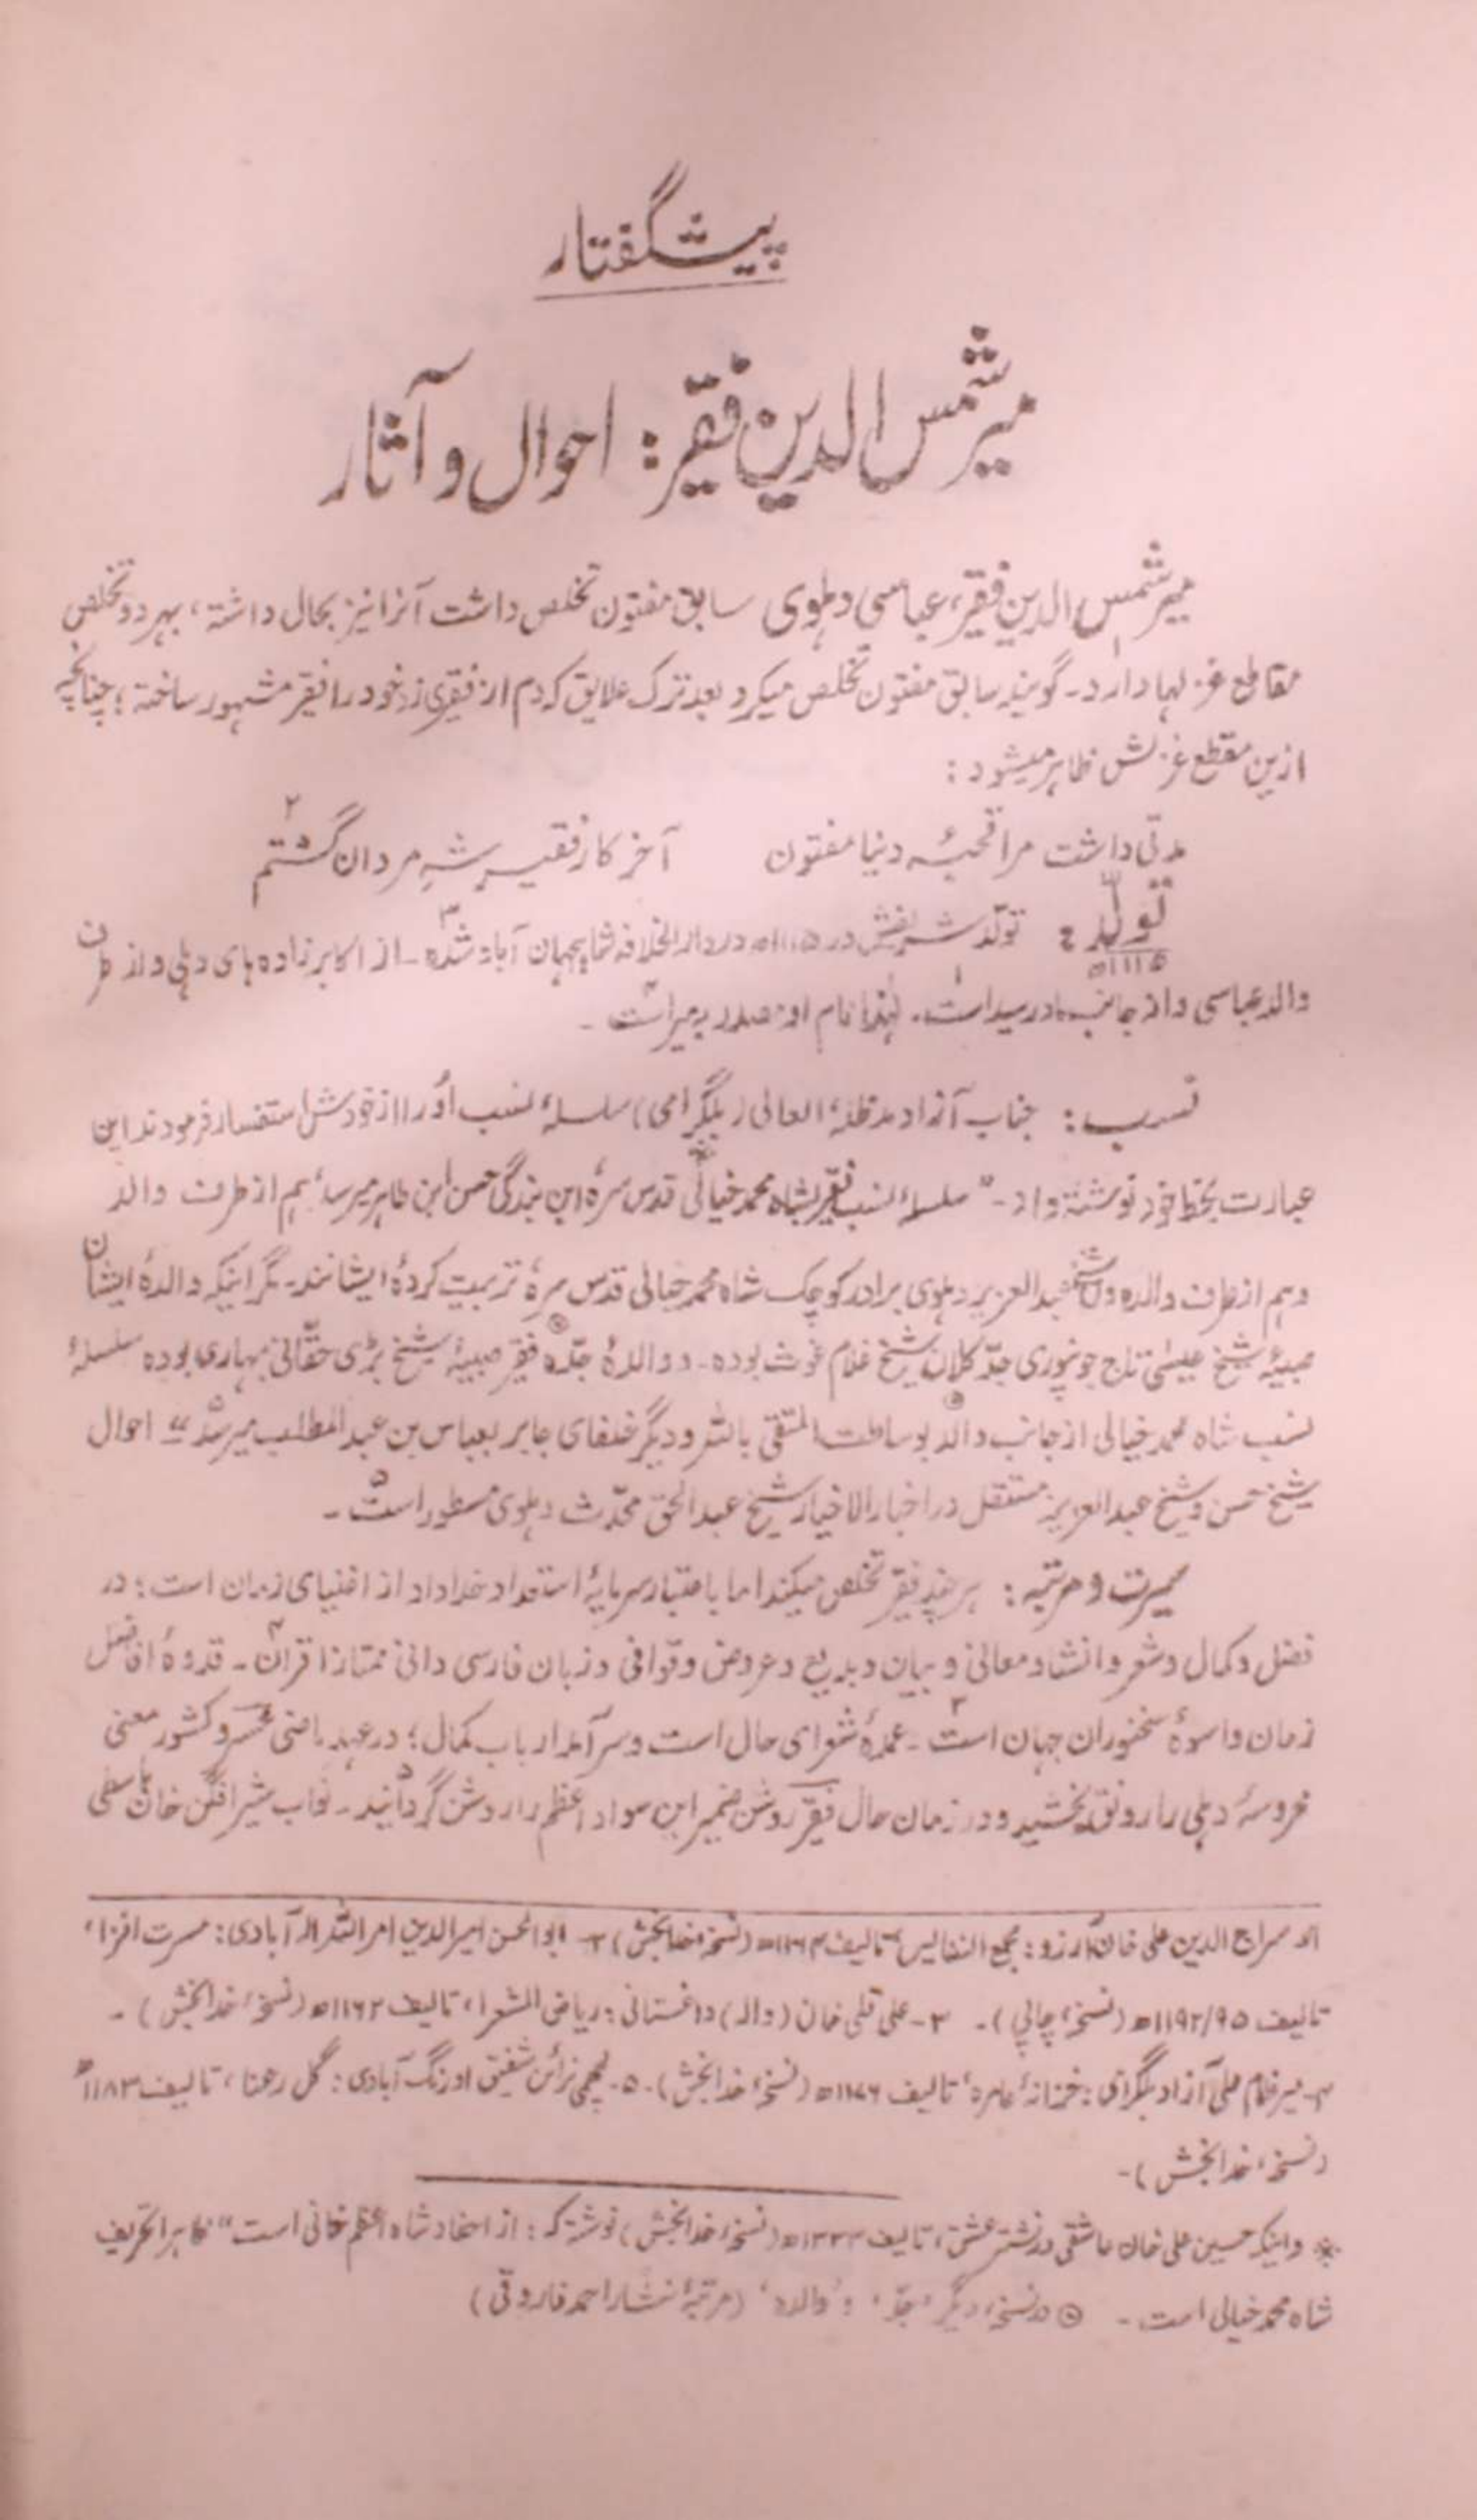 پیشگفتار
میر شمس الدین فقیر: احوال و آثار
میر شمس الدین فقیر، عباسی دہلوی سابق مفتون تخلص داشت آنرا نیز بحال داشتہ، بہر دو تخلص
مقاطع غزلہا دارد۔ گویند سابق مفتون تخلص میکرد بعد ترک علایق کردم از فقیری زد خود را فقیر مشہور ساختہ؛ چنانچہ
ازین مقطع غزلش ظاہر میشود:
مدتی داشت مرا قحبۂ دنیا مفتون آخر کار فقیر شہِ مردان گشتم ۲
تولد: تولد شریفش در ۱۱۱۵ھ در دارالخلافہ شاہجہان آباد شدہ ۳۔ از اکابر زادہ ہای دہلی و از طرف
۱۱۱۵ھ
والد عباسی و از جانب مادر سید است۱۔ لہٰذا نام او مصدر بہ میر است۴۔
نسب: جناب آزاد مدظلہ العالی (بلگرامی) سلسلۂ نسب او را از خودش استفسار فرمودند این
عبارت بخط خود نوشتہ داد۔ "سلسلۂ نسب فقیر بشاہ محمد خیالی* قدس سرہ ابن بندگی حسن ابن طاہر میرسد، ہم از طرف والد
و ہم از طرف والدہ و شیخ عبدالعزیز دہلوی برادر کوچک شاہ محمد خیالی قدس سرہ تربیت کردۂ ایشانند۔ مگر اینکہ والدۂ ایشان
صبیۂ شیخ عیسیٰ تاج جونپوری جد کلان شیخ غلام غوث بودہ۔ و والدۂ جدہ فقیر صبیۂ شیخ بڑی حقانی بہاری بودہ سلسلۂ
نسب شاہ محمد خیالی از جانب والد بوساطت المتقی باللہ و دیگر خلفای جابر بعباس بن عبدالمطلب میرسد" احوال
شیخ حسن و شیخ عبدالعزیز مستقل در اخبار الاخیار شیخ عبدالحق محدّث دہلوی مسطور است۵۔
سیرت و مرتبہ: ہر چند فقیر تخلص میکند اما باعتبار سرمایۂ استعداد خداداد از اغنیای زمان است؛ در
فضل و کمال و شعر و انشاء و معانی و بیان و بدیع و عروض و قوافی و زبان فارسی دانی ممتاز اقران۴۔ قدوۂ افاضل
زمان و اسوۂ سخنوران جہان است۳۔ عمدۂ شعرای حال است و سرآمد ارباب کمال؛ در عہد ماضی خسرو کشور معنی
عروسۂ دہلی را رونق بخشید و در زمان حال فقیر روشن ضمیر این سواد اعظم را روشن گردانید۵۔ نواب شیر افگن خان باسطی
۱۔ سراج الدین علی خان آرزو: مجمع النفایس، تالیف ۱۱۶۴ھ (نسخۂ خدابخش) ۲۔ ابوالحسن امیرالدین امراللہ الٰہ آبادی: مسرت افزا،
تالیف ۱۱۹۲/۹۵ھ (نسخۂ چاپی)۔ ۳۔ علی قلی خان (والہ) داغستانی: ریاض الشعراء، تالیف ۱۱۶۲ھ (نسخۂ خدابخش)۔
۴۔ میر غلام علی آزاد بلگرامی: خزانۂ عامرہ، تالیف ۱۱۷۶ھ (نسخۂ خدابخش)۔ ۵۔ لچھمی نرائن شفیق اورنگ آبادی: گل رعنا، تالیف ۱۱۸۳ھ
(نسخۂ خدابخش)۔
* و اینکہ حسین علی خان عاشقی در نشتر عشق، تالیف ۱۲۳۳ھ (نسخۂ خدابخش) نوشتہ کہ: از احفاد شاہ اعظم خانی است" ظاہراً تحریف
شاہ محمد خیالی است۔ ۵ در نسخۂ دیگر 'جدّ' و 'والد' (مرتبۂ نثار احمد فاروقی)